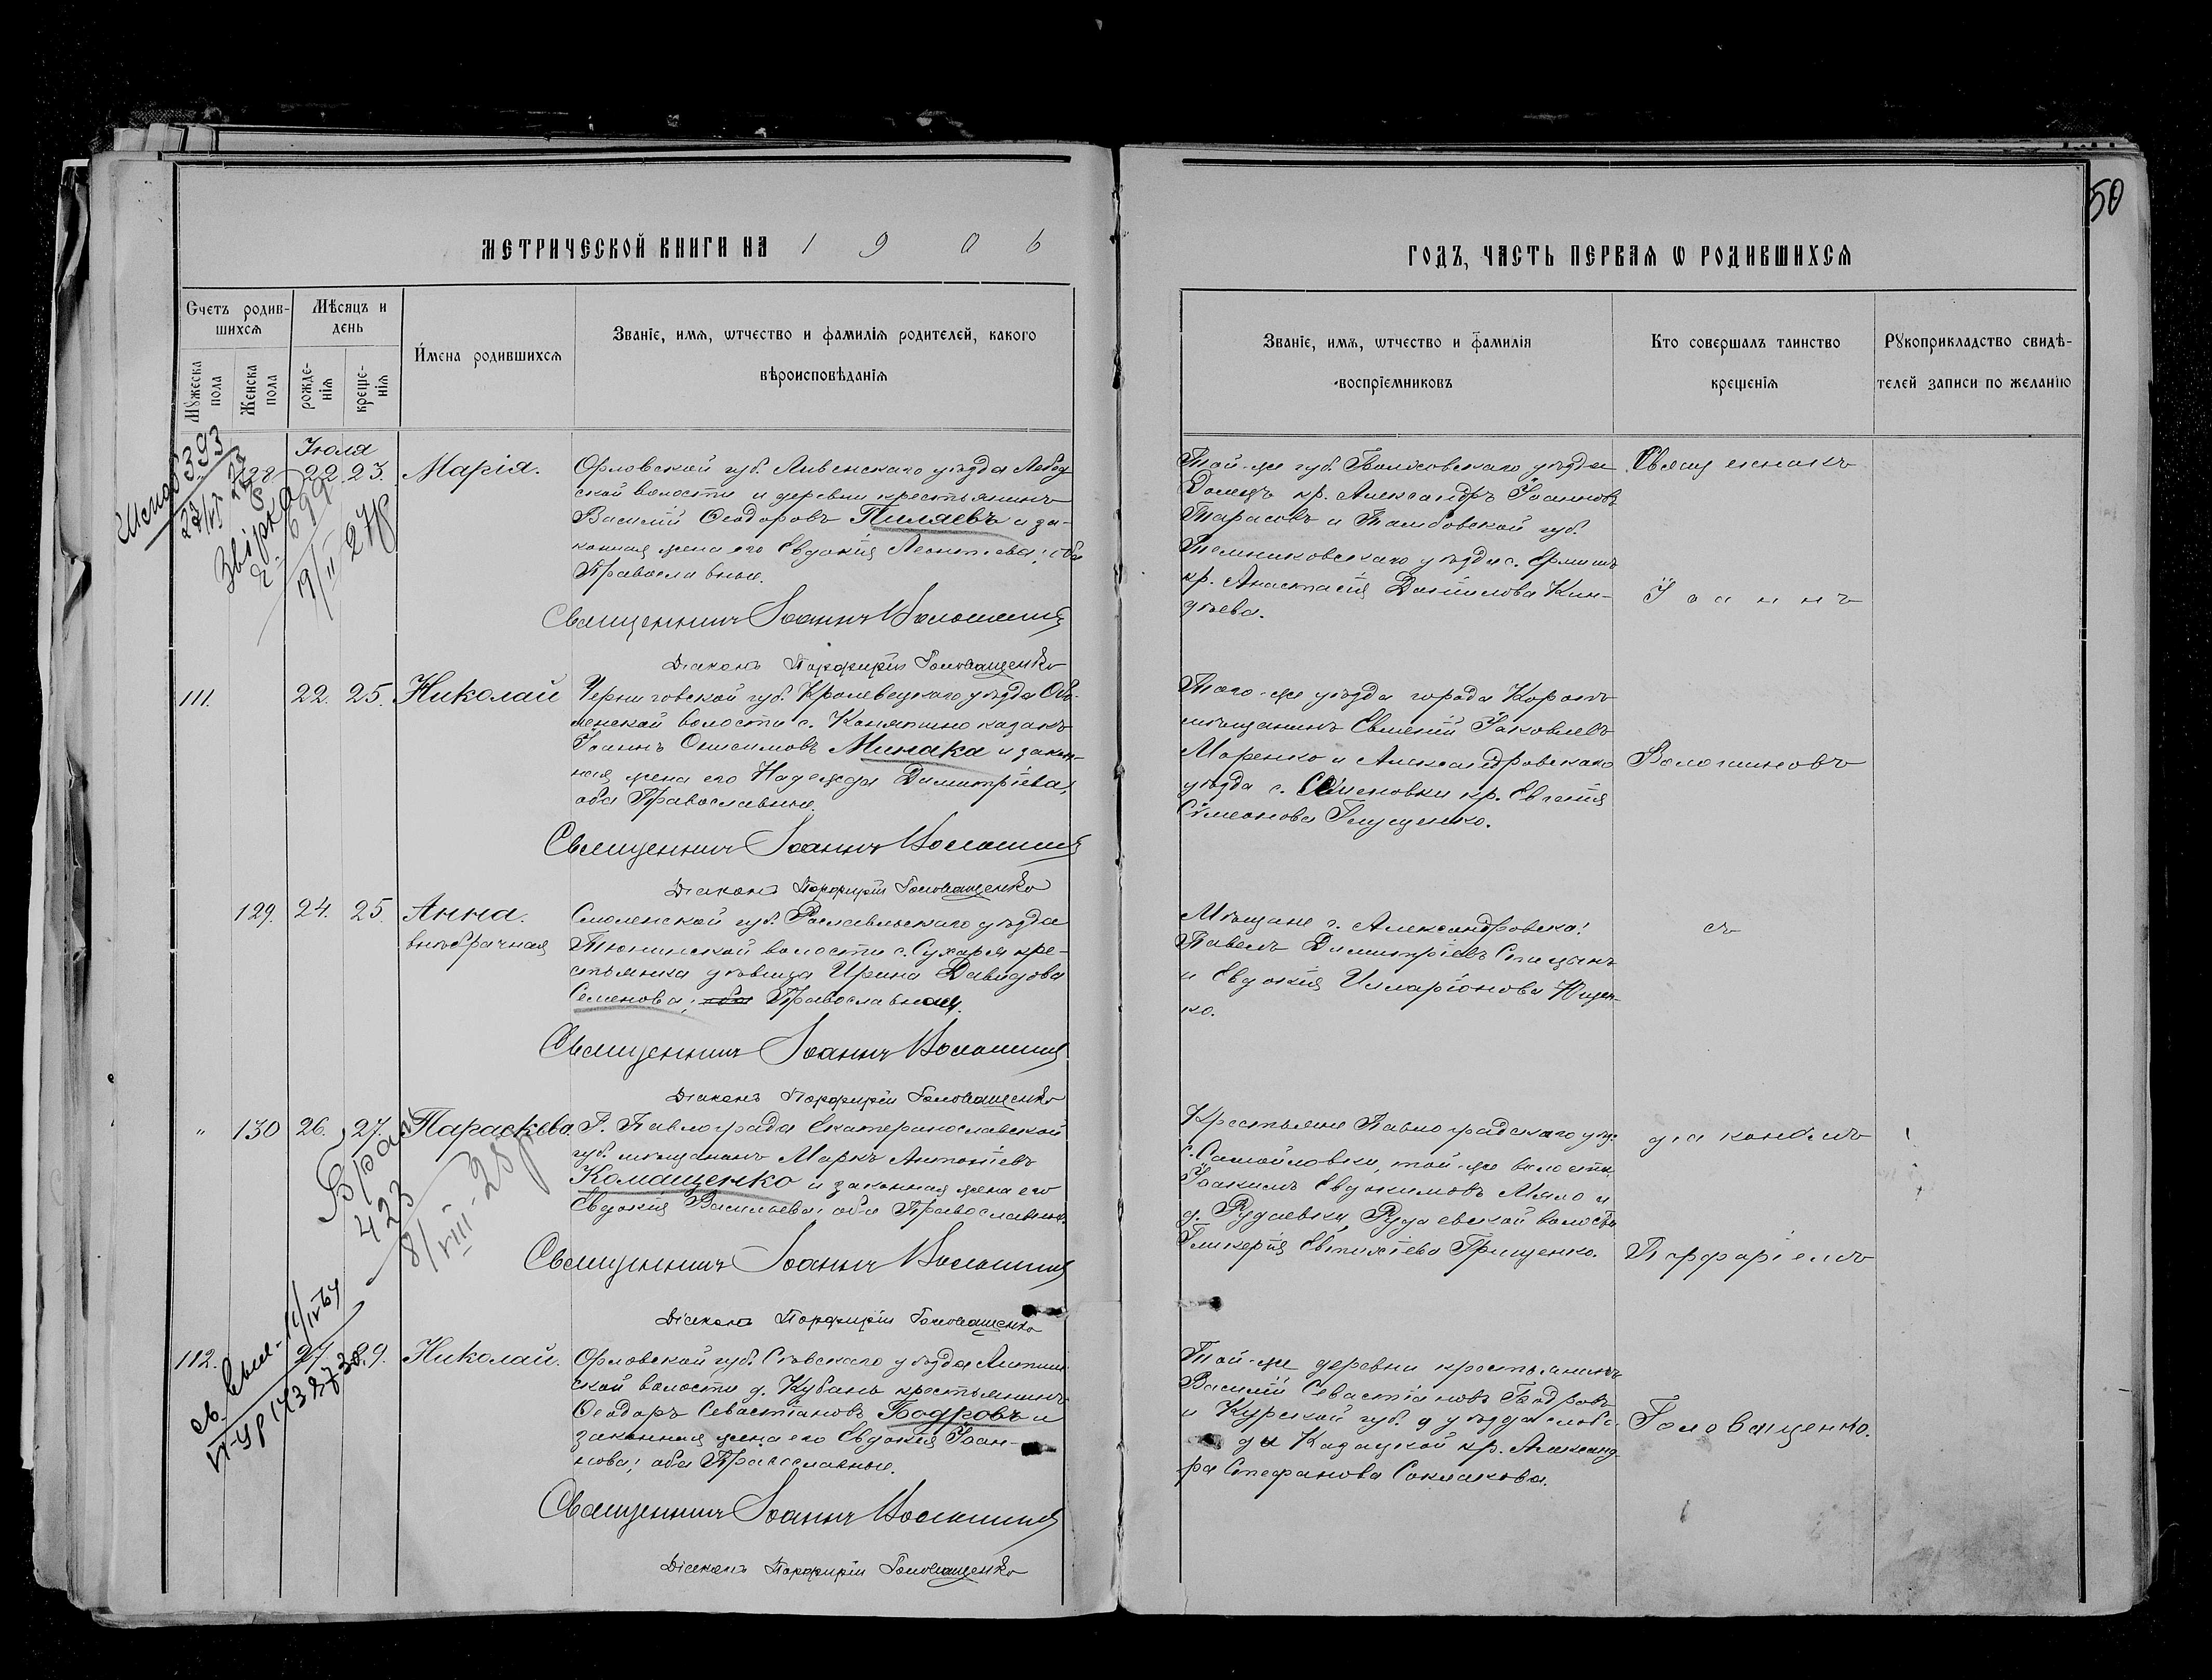 50
МЕТРИЧЕСКОЙ КНИГИ НА 1906
ГОДЪ, ЧАСТЬ ПЕРВАЯ Ѡ РОДИВШИХСЯ
Счетъ родив-
шихся
Мꙋжеска пола
Женска пола
Мѣсяцъ и
день
рожде-
нія
креще-
нія
Имена родившихся
Званіе, имя, ѡтчество и фамилія родителей, какого
вѣроисповѣданія
Званіе, имя, ѡтчество и фамилія
воспріемниковъ
Кто совершалъ таинство
крещенія
Рꙋкоприкладство свидѣ-
телей записи по желанію
Іюля
128 22. 23. Марія.
Орловской губ. Ливенскаго уѣзда
ской волости и деревни крестьянинъ
Василій Ѳеодоровъ Пиляевъ и за-
конная жена его Евдокія Леонтіева; оба
Православные.
Священникъ Іоаннъ Волошинъ
Діаконъ Порфирій Головащенко
Той-же губ. уѣзда
кр. Александръ Іоанновъ
Тарасовъ и Тамбовской губ.
Темниковскаго уѣзда с.
кр. Анастасія Даніилова Кин-
дѣева.
Священникъ
Іоаннъ
111. 22. 25. Николай
Черниговской губ. Кролевецкаго уѣзда
волости с. казакъ
Іоаннъ Онисимовъ Минака и закон-
ная жена его Надежда Димитріева,
оба Православные.
Священникъ Іоаннъ Волошинъ
Діаконъ Порфирій Головащенко
Того-же уѣзда города Коропъ
мѣщанинъ Евменій Іаковлевъ
Маренко и Александровскаго
уѣзда с. Семеновки кр. Евгенія
Сѵмеонова Глущенко.
Волошиновъ
129. 24. 25. Анна.
внѣбрачная
Смоленской губ. Рославльскаго уѣзда
волости с. Сухаря кре-
стьянка дѣвица Ирина Давидова
Семенова; оба Православная.
Священникъ Іоаннъ Волошинъ
Діаконъ Порфирій Головащенко
Мѣщане г. Александровска:
Павелъ Димитріевъ Спицынъ
и Евдокія Илларіонова Ющен-
ко.
съ
" 130 26. 27. Параскева.
Г. Павлограда Екатеринославской
губ. мѣщанинъ Маркъ Антоніевъ
Комащенко и законная жена его
Евдокія Васильева; оба Православные.
Священникъ Іоаннъ Волошинъ
Діаконъ Порфирій Головащенко
Крестьяне Павлоградскаго уѣз.
с. Самойловки, той-же волости,
Іоакимъ Евдокимовъ Мяло и
д. Рудаевки, Рудаевской волости
Гликерія Евтихіева Грищенко.
діакономъ
Порфиріемъ
112. 27. 29. Николай.
Орловской губ. Сѣвскаго уѣзда
ской волости д. Кубань крестьянинъ
Ѳеодоръ Севастіановъ Бодровъ и
законная жена его Евдокія Іоан-
нова; оба Православные.
Священникъ Іоаннъ Волошинъ
Діаконъ Порфирій Головащенко
Той-же деревни крестьянинъ
Василій Севастіановъ Бодровъ
и Курской губ. и уѣзда слобо-
ды Казацкой кр. Александ-
ра Стефанова Соклакова.
Головащенко.
393
Звірка
699
19/II-27р
Брак
423
8/VIII-28р